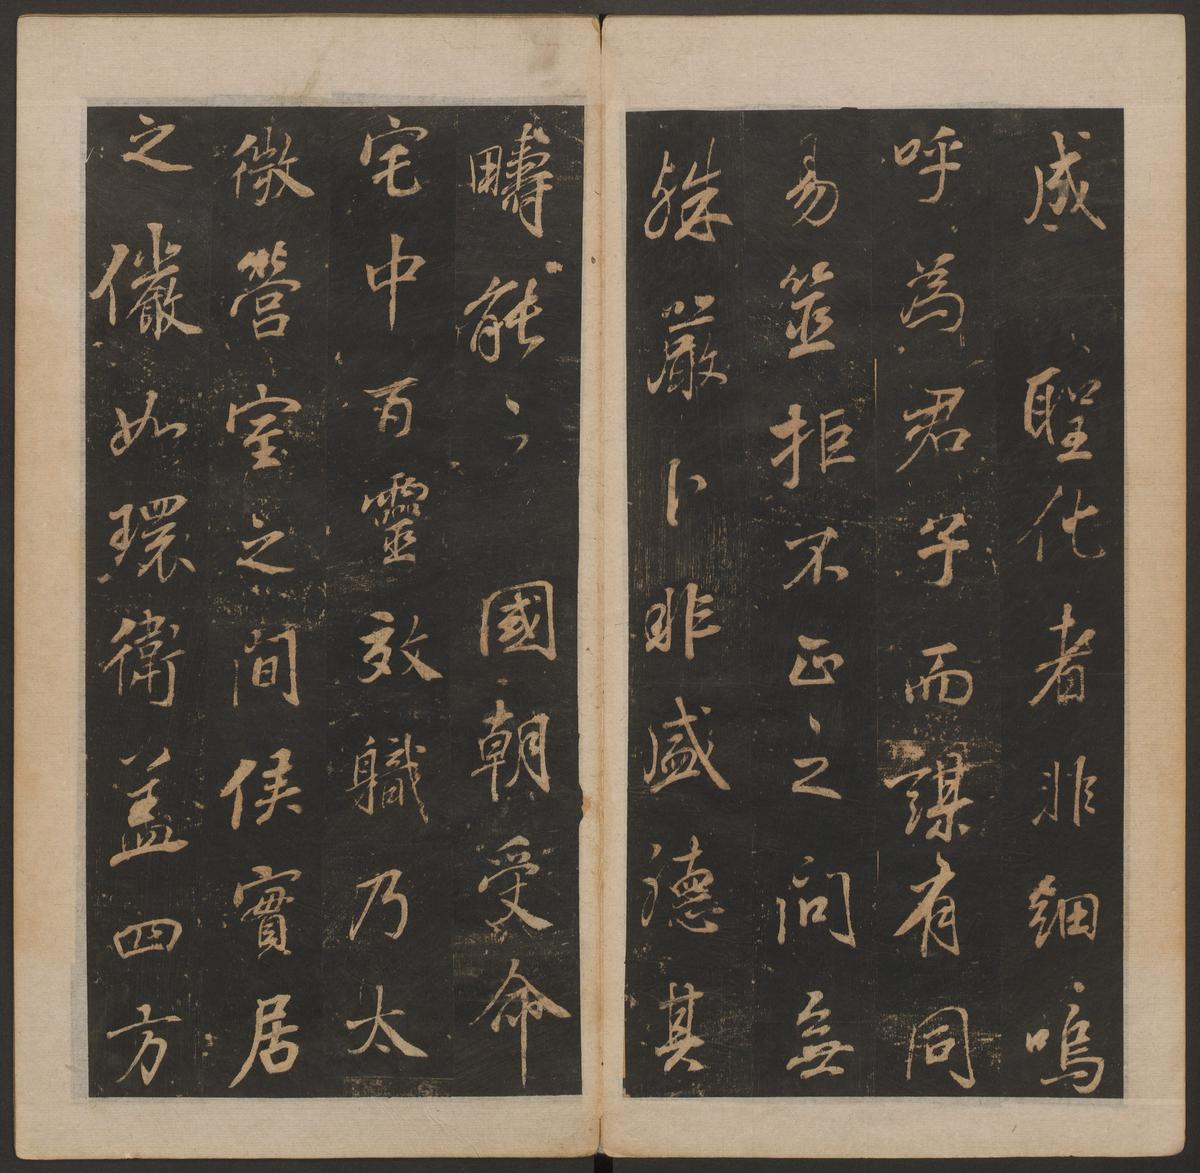 成 聖化者非細嗚
呼為君子而謀有同
易筮拒不正之問無
殊嚴卜非盛德其
疇能之 國朝受命
宅中百靈效職乃太
微營室之間侯實居
之儼如環衛蓋四方